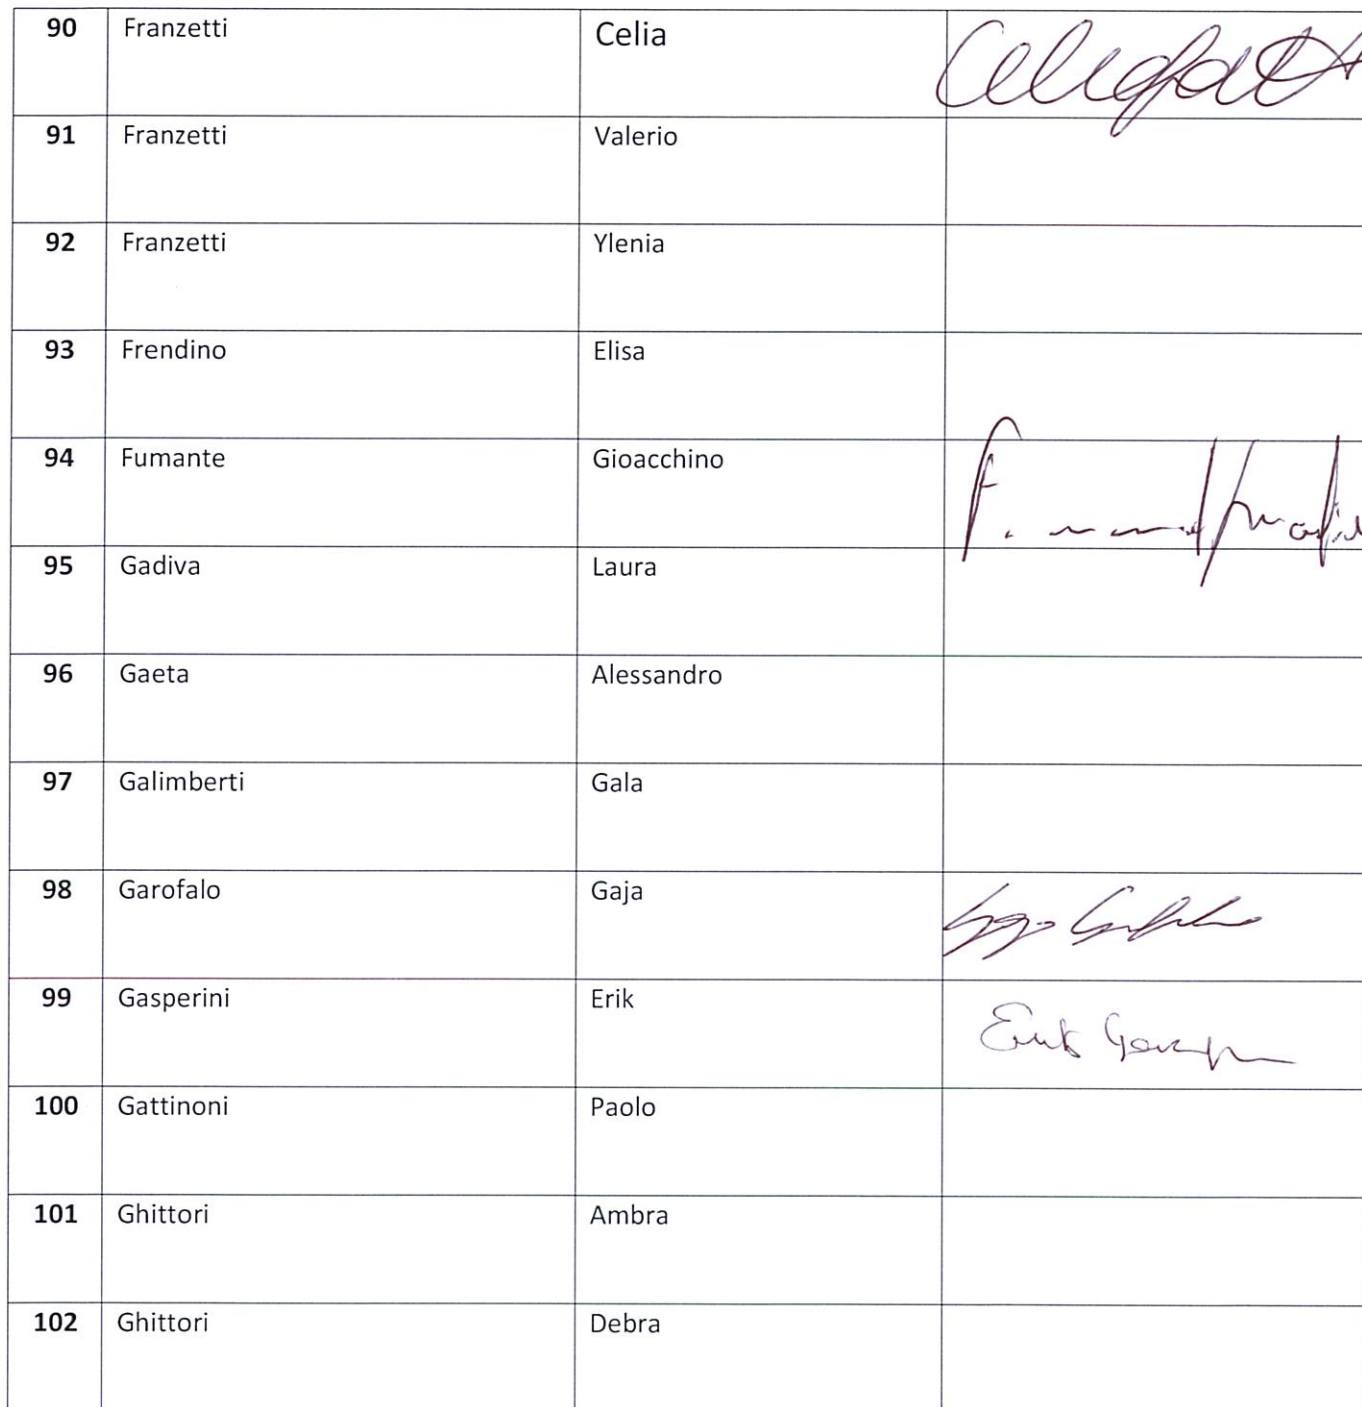 90 Franzetti Celia
91 Franzetti Valerio
92 Franzetti Ylenia
93 Frendino Elisa
94 Fumante Gioacchino
95 Gadiva Laura
96 Gaeta Alessandro
97 Galimberti Gala
98 Garofalo Gaja
99 Gasperini Erik
100 Gattinoni Paolo
101 Ghittori Ambra
102 Ghittori Debra